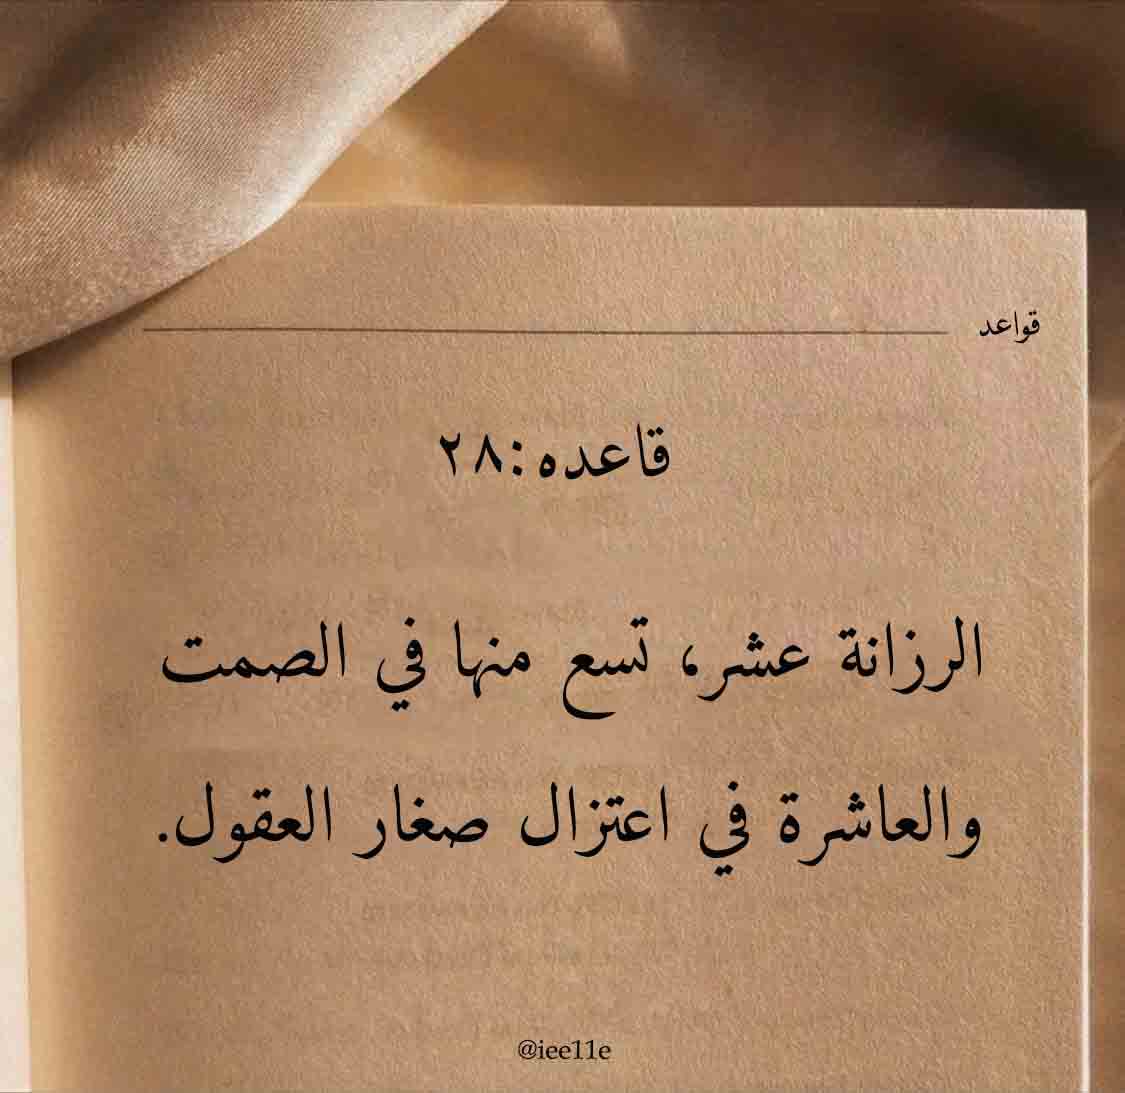 قواعد
قاعده:٢٨
الرزانة عشر، تسع منها في الصمت
والعاشرة في اعتزال صغار العقول.
@iee11e